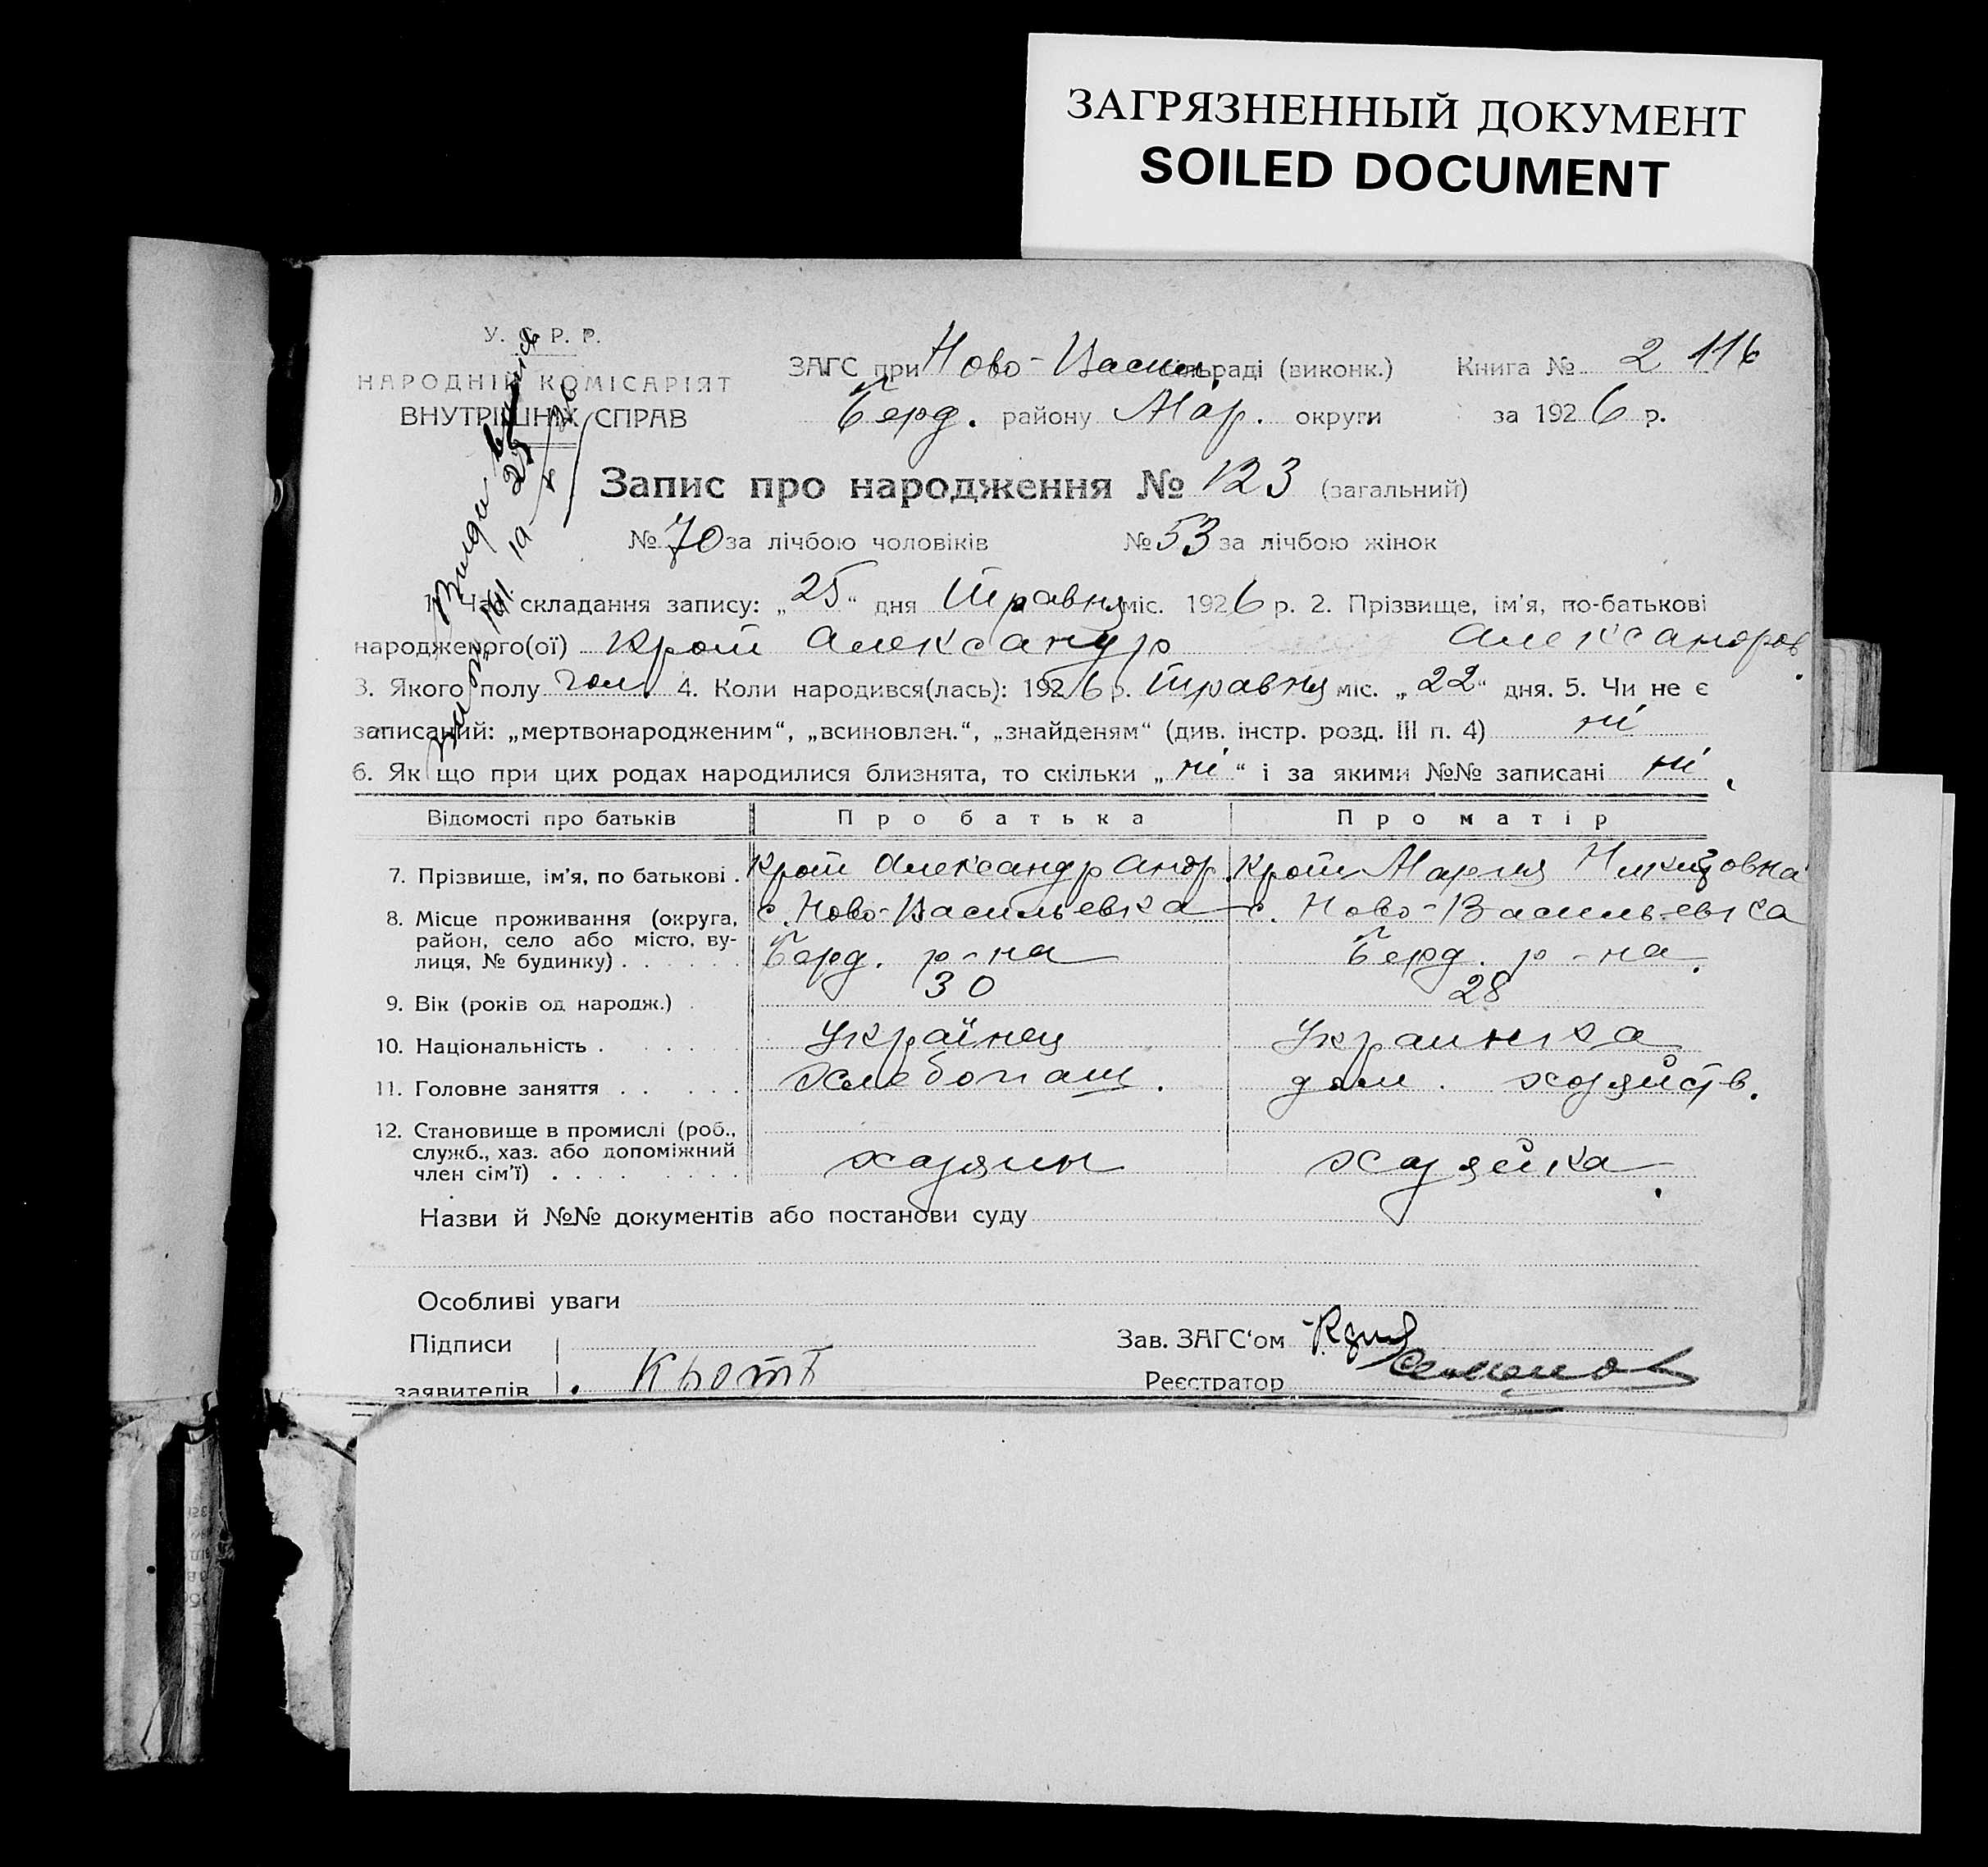 ЗАГРЯЗНЕННЫЙ ДОКУМЕНТ
SOILED DOCUMENT
У. С. Р. Р.
НАРОДНІЙ КОМІСАРІЯТ
ВНУТРІШНІХ СПРАВ
ЗАГС при Ново-Васил. сільраді (виконк.) Книга № 2 116
Берд. району Мар. округи за 1926 р.
Запис про народження № 123 (загальний)
№ 70 за лічбою чоловіків № 53 за лічбою жінок
1. Час складання запису: „25“ дня Травня міс. 1926 р. 2. Прізвище, ім'я, по-батькові
народженого(ої) Крот Александр Александров.
3. Якого полу чол. 4. Коли народився(лась): 1926 р. Травня міс. „22“ дня. 5. Чи не є
записаний: „мертвонародженим“, „всиновлен.“, „знайденям“ (див. інстр. розд. III п. 4) ні
6. Як що при цих родах народилися близнята, то скільки „ні“ і за якими №№ записані ні.
Відомості про батьків Про батька Про матір
7. Прізвище, ім'я, по батькові . Крот Александр Андр. Крот Мария
8. Місце проживання (округа, с. Ново-Васильевка с. Ново-Васильевка
район, село або місто, ву-
лиця, № будинку) . Берд. р-на Берд. р-на.
9. Вік (років од народж.) . 30 28
10. Національність . Українец Украинка
11. Головне заняття . Хлебопаш. дом. хозяйств.
12. Становище в промислі (роб.,
служб., хаз. або допоміжний
член сім'ї) . хозяин хозяйка.
Назви й №№ документів або постанови суду
Особливі уваги
Підписи Зав. ЗАГС'ом
заявителів Кротъ Реєстратор